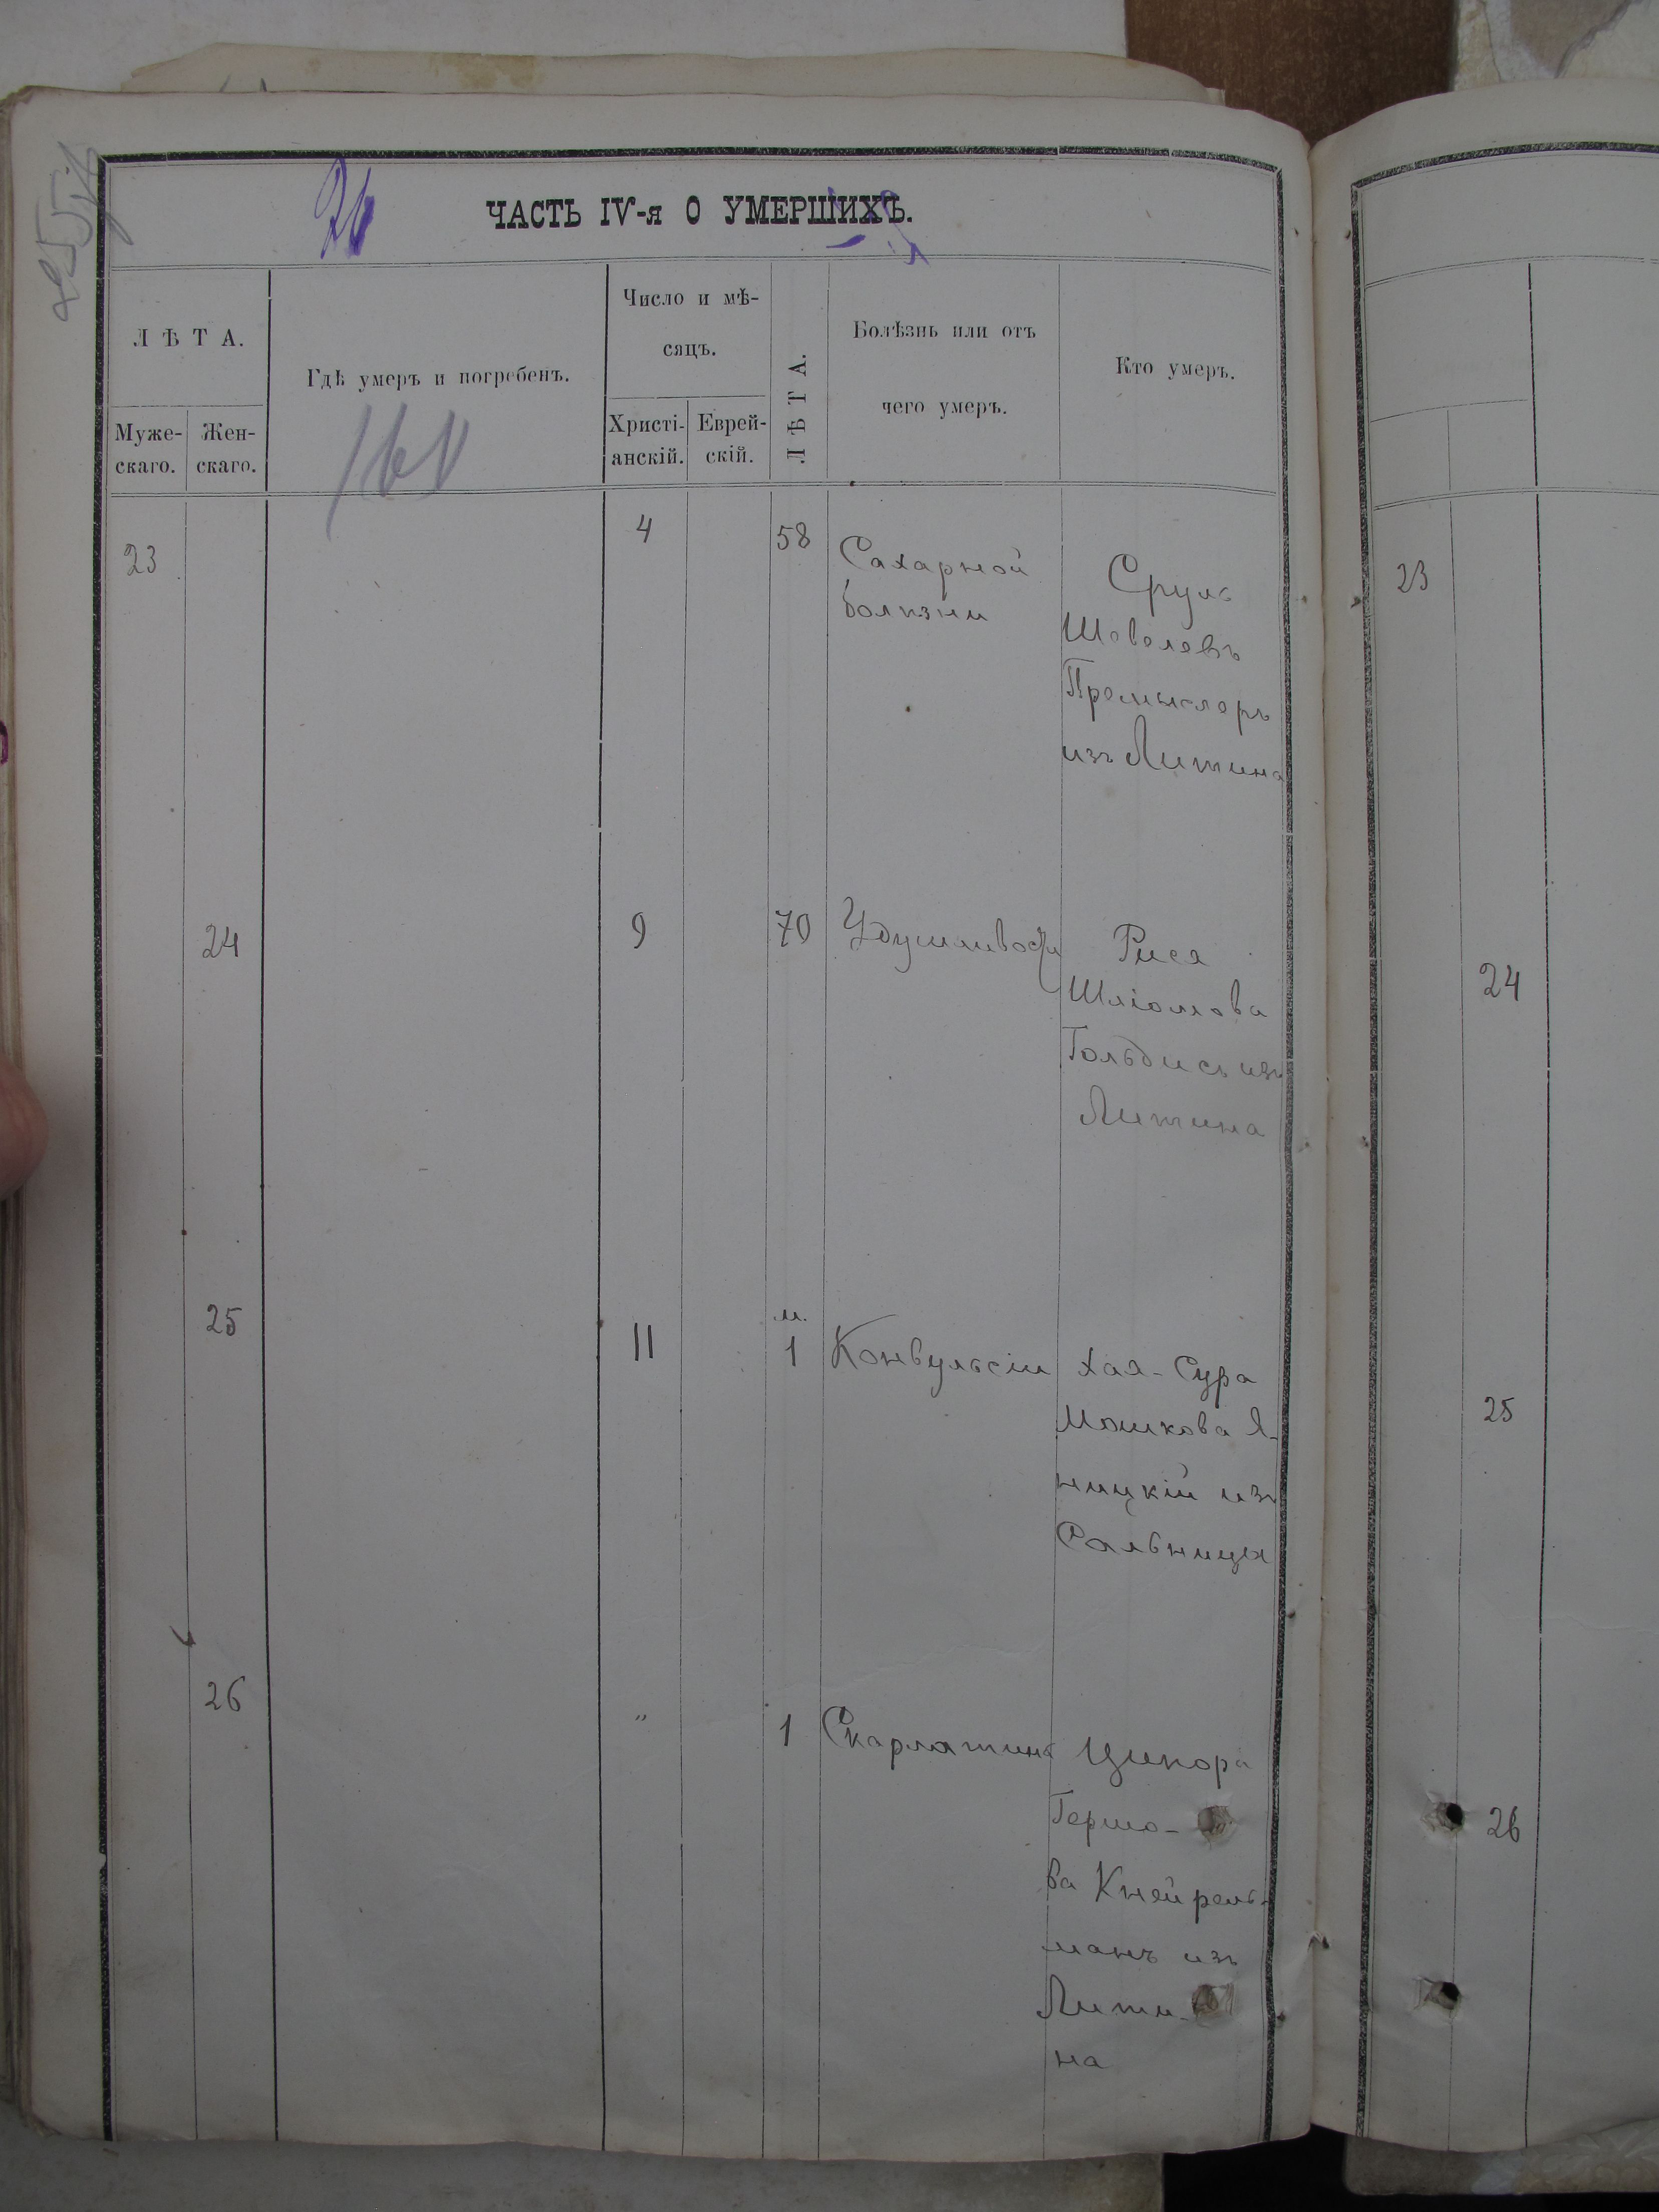 26
ЧАСТЬ IV-я О УМЕРШИХЪ.
ЛѢТА.
Муже-
скаго.
Жен-
скаго.
Гдѣ умеръ и погребенъ.
Число и мѣ-
сяцъ.
Христі-
анскій.
Еврей-
скій.
ЛѢТА.
Болѣзнь или отъ
чего умеръ.
Кто умеръ.
23
4
58
Сахарной
болѣзни
Сруль
Шовелевъ
Промыслеръ
изъ Литина
24
9
70
Удушливости
Рися
Шліомова
Гольдисъ изъ
Литина
25
11
м.
1
Конвульсіи
Хая-Сура
Мошкова Я-
ницкій изъ
Сальницы
26
"
1
Скарлатина
Ципора
Гершо-
ва Кнейрель-
манъ изъ
Лити-
на
23
24
25
26